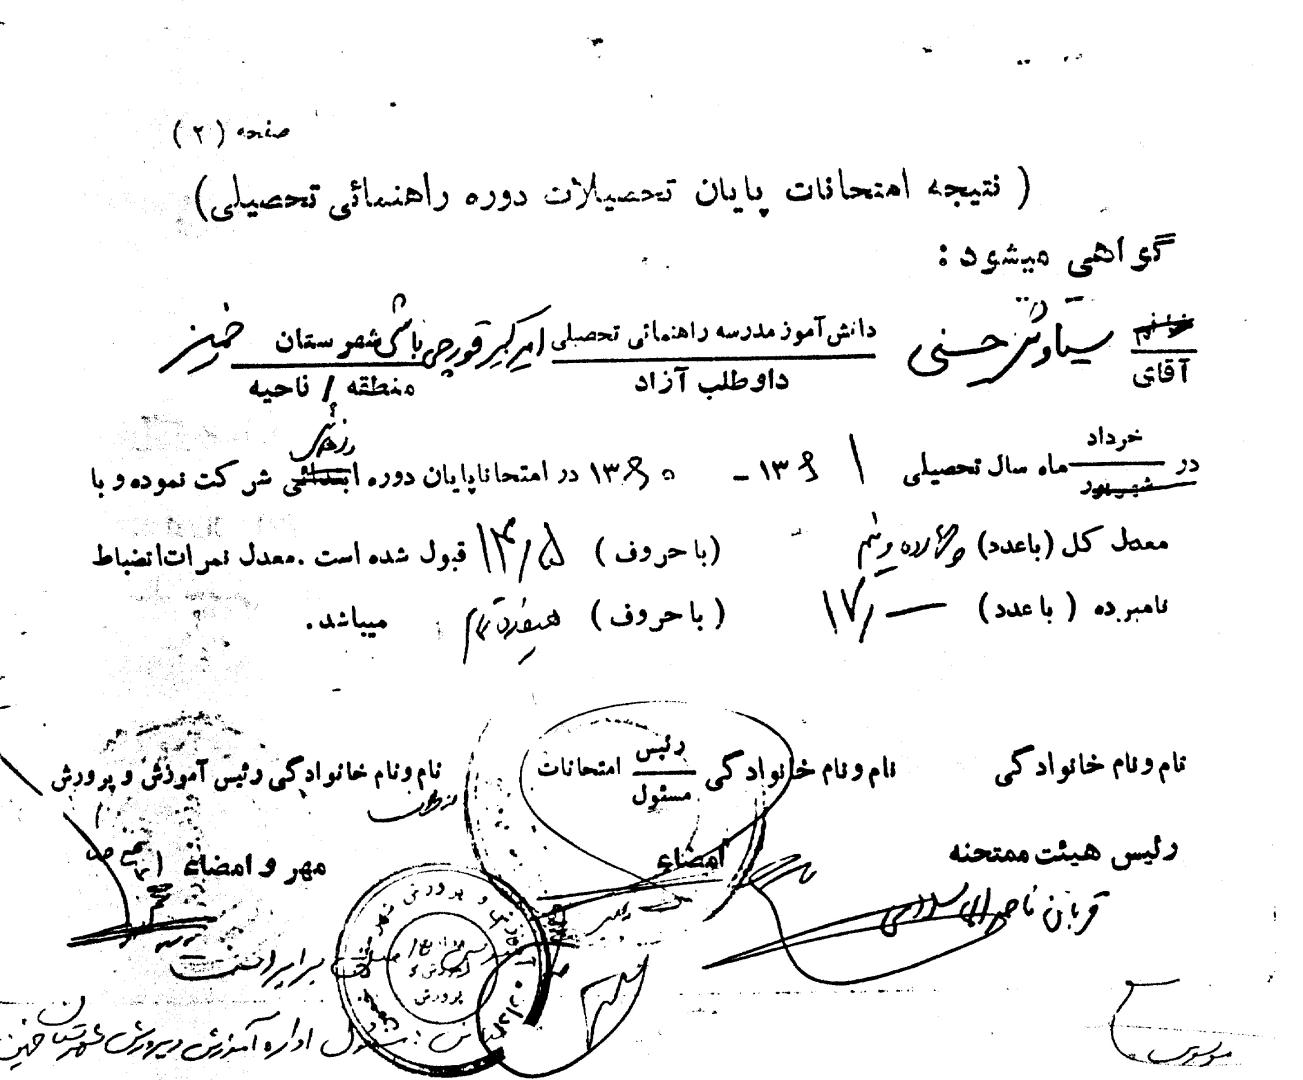 صفحه (۲)
( نتیجه امتحانات پایان تحصیلات دوره راهنمائی تحصیلی)
گواهی میشود :
خانم
آقای
سیاوش حسنی
دانش آموز مدرسه راهنمائی تحصیلی
داوطلب آزاد
امیرکبیر قورچی باشی
شهرستان
منطقه / ناحیه
خمین
در
خرداد
شهریور
ماه سال تحصیلی ۱۳۶۱ - ۱۳۶۰ در امتحانا پایان دوره ابتدائی راهنمائی شرکت نموده و با
معدل کل (باعدد) چهارده و نیم (با حروف) ۱۴/۵ قبول شده است . معدل نمرات انضباط
نامبرده ( با عدد) ۱۷/— (با حروف) هفده تمام میباشد .
نام ونام خانوادگی
نام ونام خانوادگی رئیس امتحانات
مسئول
نام ونام خانوادگی رئیس آموزش و پرورش
رئیس هیئت ممتحنه
امضاء
مهر و امضاء
قربان ناصرالاسلامی
برابر اصل است
مسئول اداره آموزش و پرورش شهرستان خمین